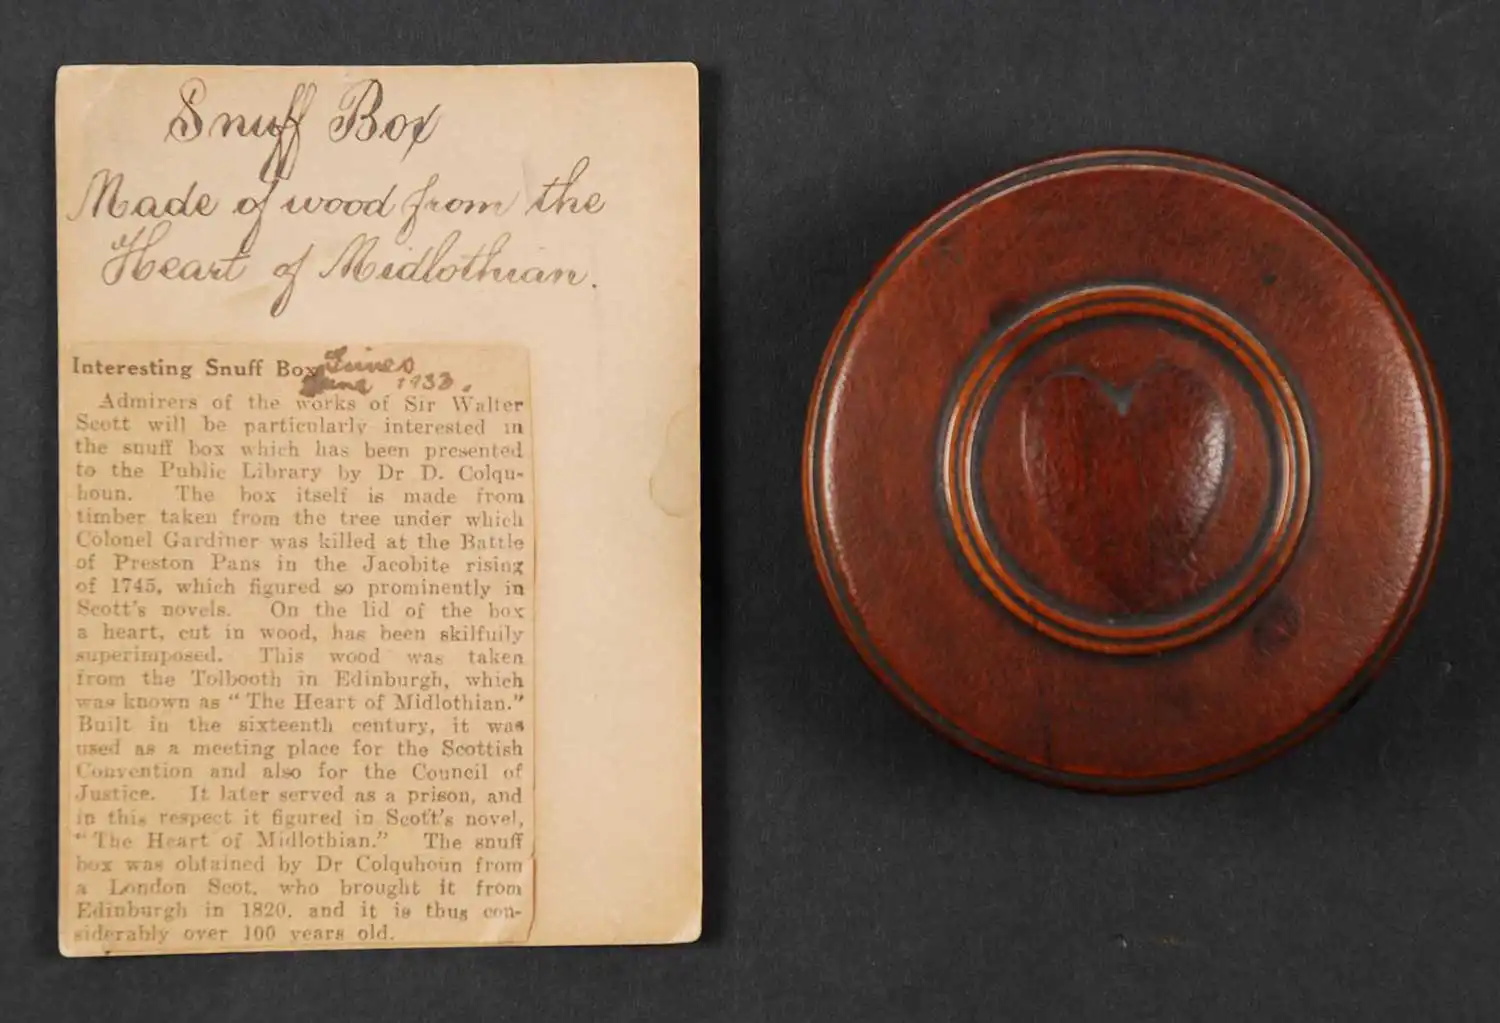 Snuff Box
Made of wood from the
Heart of Midlothian.
Interesting Snuff Box
Times
June 1933.
Admirers of the works of Sir Walter
Scott will be particularly interested in
the snuff box which has been presented
to the Public Library by Dr D. Colqu-
houn. The box itself is made from
timber taken from the tree under which
Colonel Gardiner was killed at the Battle
of Preston Pans in the Jacobite rising
of 1745, which figured so prominently in
Scott's novels. On the lid of the box
a heart, cut in wood, has been skilfuily
superimposed. This wood was taken
from the Tolbooth in Edinburgh, which
was known as "The Heart of Midlothian."
Built in the sixteenth century, it was
used as a meeting place for the Scottish
Convention and also for the Council of
Justice. It later served as a prison, and
in this respect it figured in Scott's novel,
"The Heart of Midlothian." The snuff
box was obtained by Dr Colquhoun from
a London Scot, who brought it from
Edinburgh in 1820, and it is thus con-
siderably over 100 years old.